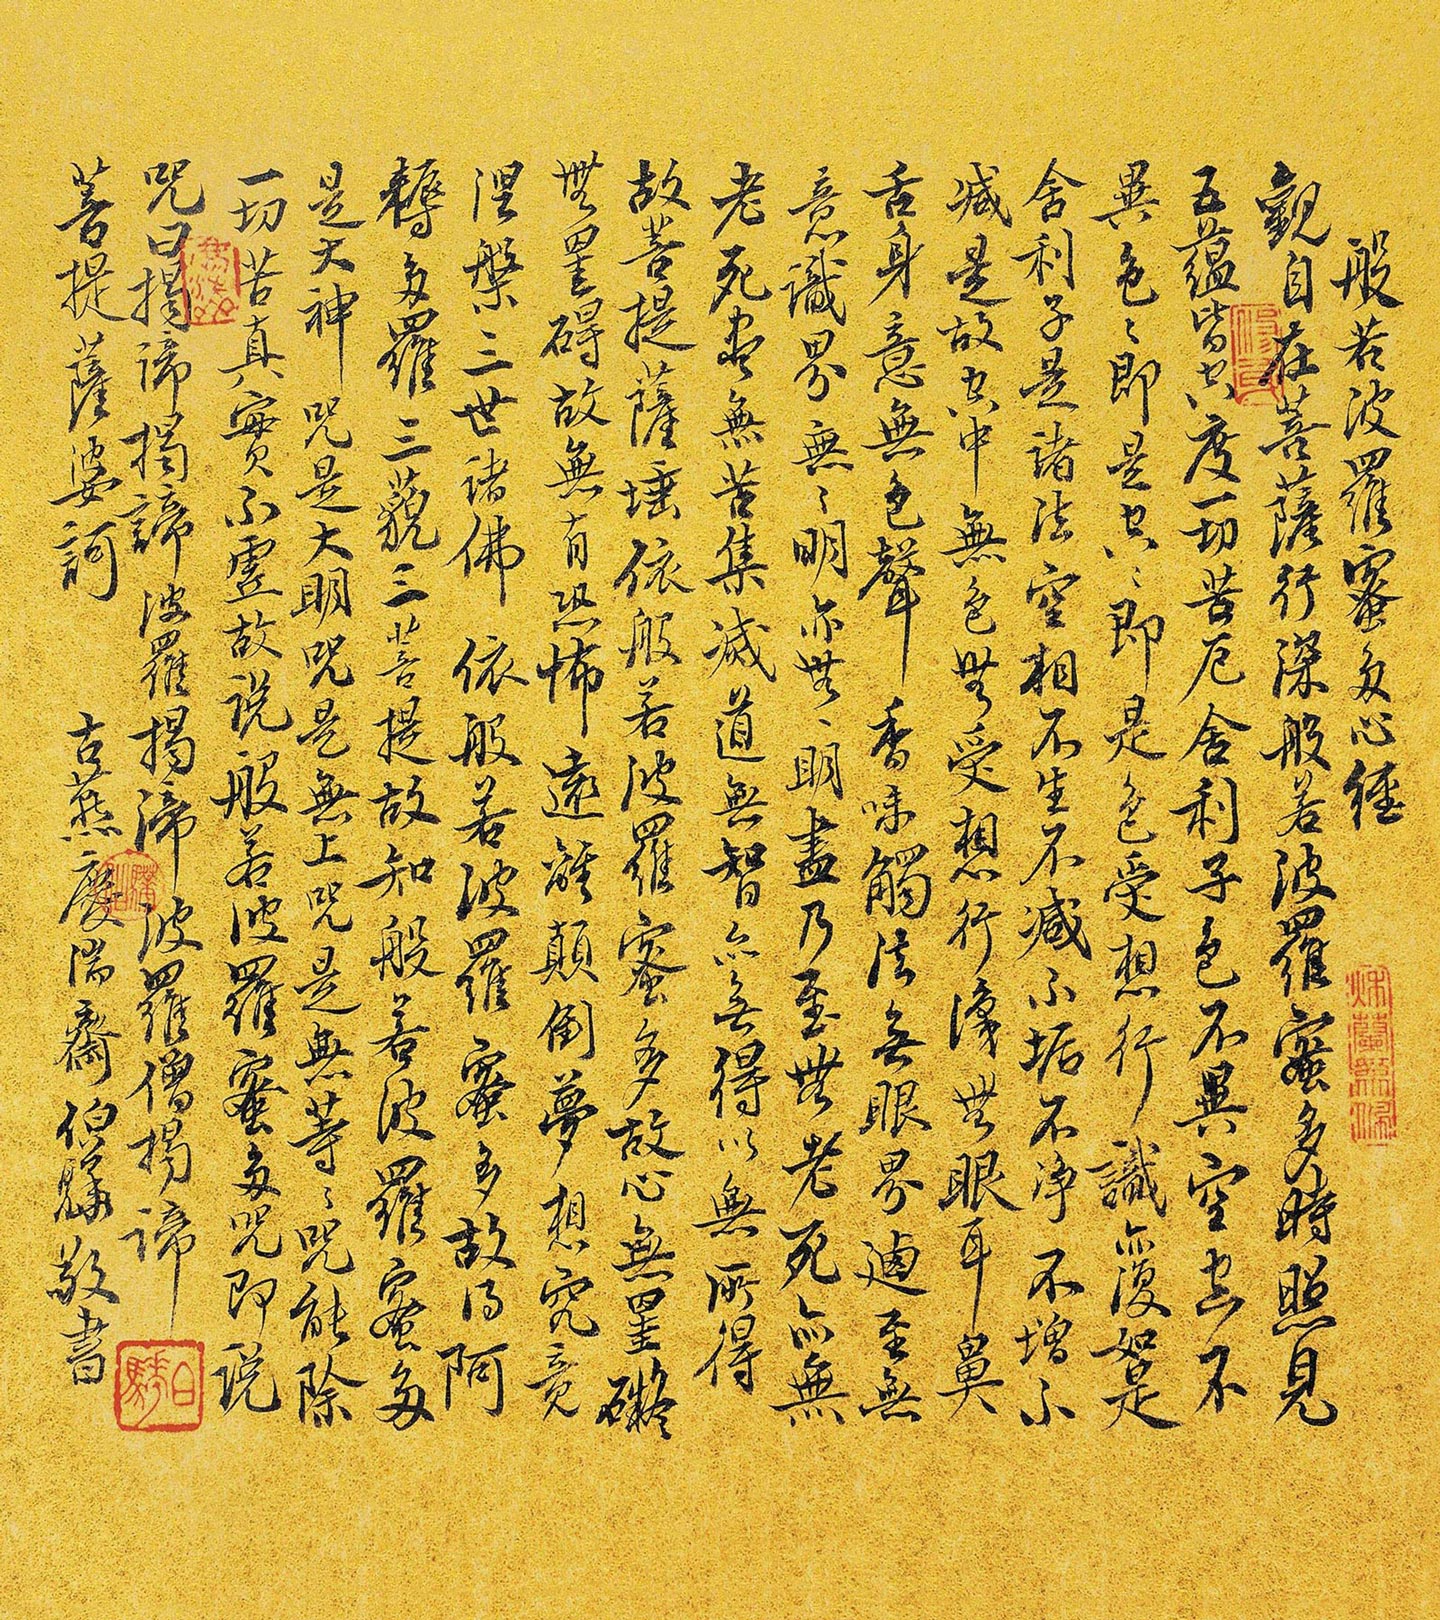 般若波羅蜜多心經
觀自在菩薩行深般若波羅蜜多時照見
五蘊皆空度一切苦厄舍利子色不異空空不
異色〻即是空〻即是色受想行識亦復如是
舍利子是諸法空相不生不減不垢不淨不增不
減是故空中無色無受想行識無眼耳鼻
舌身意無色聲香味觸法無眼界迺至無
意識界無〻明亦無〻明盡乃至無老死亦無
老死盡無苦集滅道無智亦無得以無所得
故菩提薩埵依般若波羅蜜多故心無罣礙
無罣碍故無有恐怖遠離顛倒夢想究竟
涅槃三世諸佛依般若波羅蜜多故得阿
耨多羅三藐三菩提故知般若波羅蜜多
是大神咒是大明咒是無上咒是無等〻咒能除
一切苦真實不虛故說般若波羅蜜多咒即說
咒曰揭諦揭諦波羅揭諦波羅僧揭諦
菩提薩婆訶 古燕慶齋伯敬書